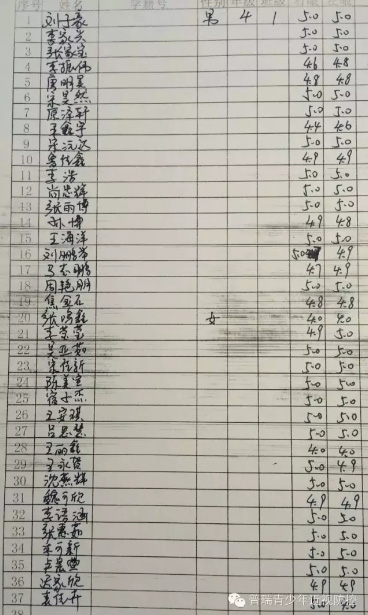 序号 姓名 学籍号 性别 年级 班级
1 刘子豪 男 4 1 5.0 5.0
2 5.0 5.0
3 张家宝 5.0 5.0
4 李振伟 4.6 4.8
5 唐明昊 4.8 4.8
6 宋昊然 5.0 5.0
7 原泽轩 5.0 5.0
8 王鑫宇 4.4 4.6
9 5.0 5.0
10 鲁佳鑫 4.9 4.9
11 李浩 5.0 5.0
12 尚忠辉 5.0 5.0
13 张雨博 5.0 5.0
14 孙博 4.9 4.8
15 王海洋 5.0 5.0
16 刘鹏 5.0 4.9
17 4.7 4.9
18 周艳朋 5.0 5.0
19 焦金石 4.8 4.8
20 张鸣鑫 女 4.0 4.0
21 李荣莹 4.9 5.0
22 吴亚茹 5.0 5.0
23 宋佳新 5.0 5.0
24 陈美宣 5.0 5.0
25 5.0 5.0
26 王安琪 5.0 5.0
27 吕思慧 5.0 5.0
28 王丽鑫 4.0 4.0
29 王永贤 5.0 4.9
30 沈燕娜 5.0 5.0
31 魏可欣 4.9 4.9
32 李语涵 5.0 5.0
33 张惠茹 5.0 5.0
34 可新 5.0 5.0
35 5.0 5.0
36 家欣 4.9 4.9
37 袁佳卉 5.0
普瑞青少年近视防控